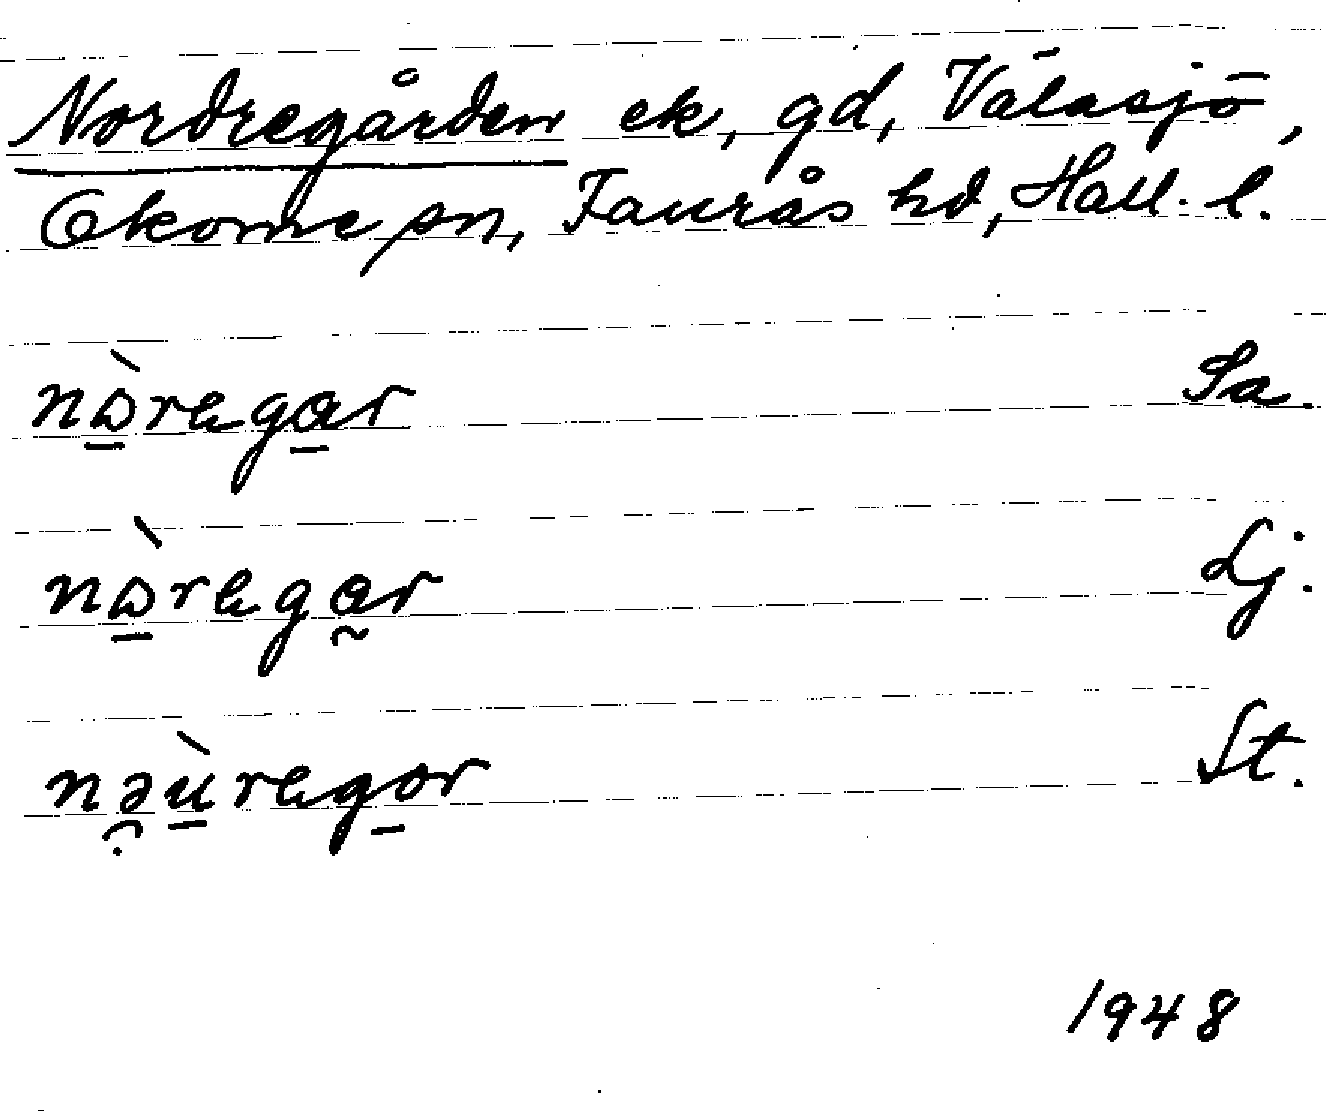 Nordregården ek, gd, Välasjö,
Okome sn, Faurås hd, Hall. l.
nɷ̠̀rega̠r Sa.
nɷ̠̀rega̰r Lj.
nəù̠rego̠r St.
1948